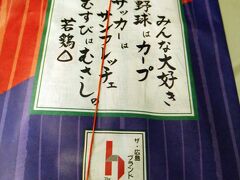 みんな大好き
野球はカープ
サッカーは
サンフレッチェ
むすびはむさし。
若鶏△
ザ・広島
ブランド